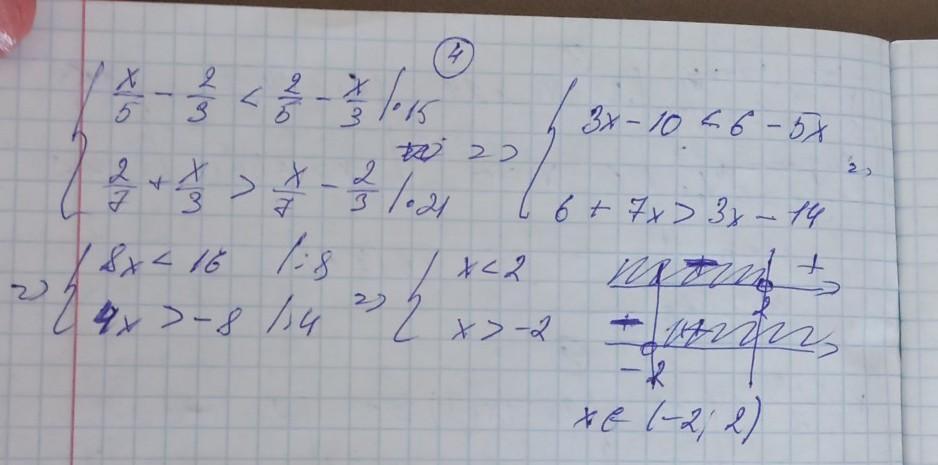 4
{ x/5 - 2/3 < 2/5 - x/3 |·15
{ 2/7 + x/3 > x/7 - 2/3 |·21
=> { 3x - 10 < 6 - 5x
{ 6 + 7x > 3x - 14 =>
=> { 8x < 16 |:8
{ 4x > -8 |:4
=> { x < 2
{ x > -2
+
2
-2
x ∈ (-2; 2)